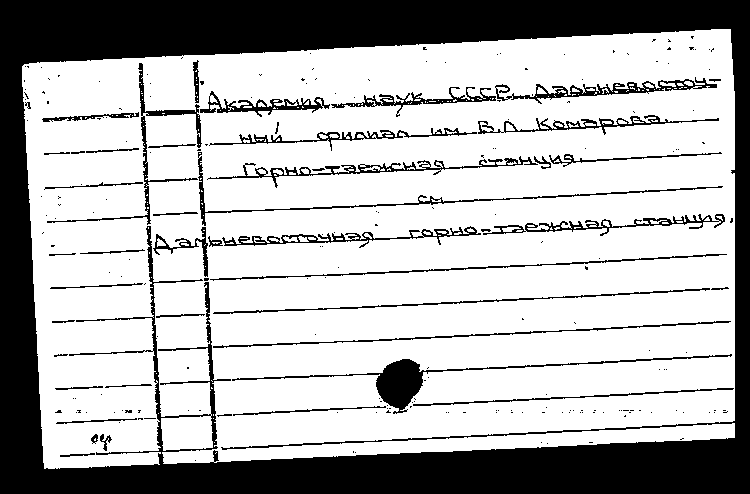 Академия наук СССР. Дальневосточ-
ный филиал им. В.Л. Комарова.
Горно-таежная станция.
см
Дальневосточная горно-таежная станция.